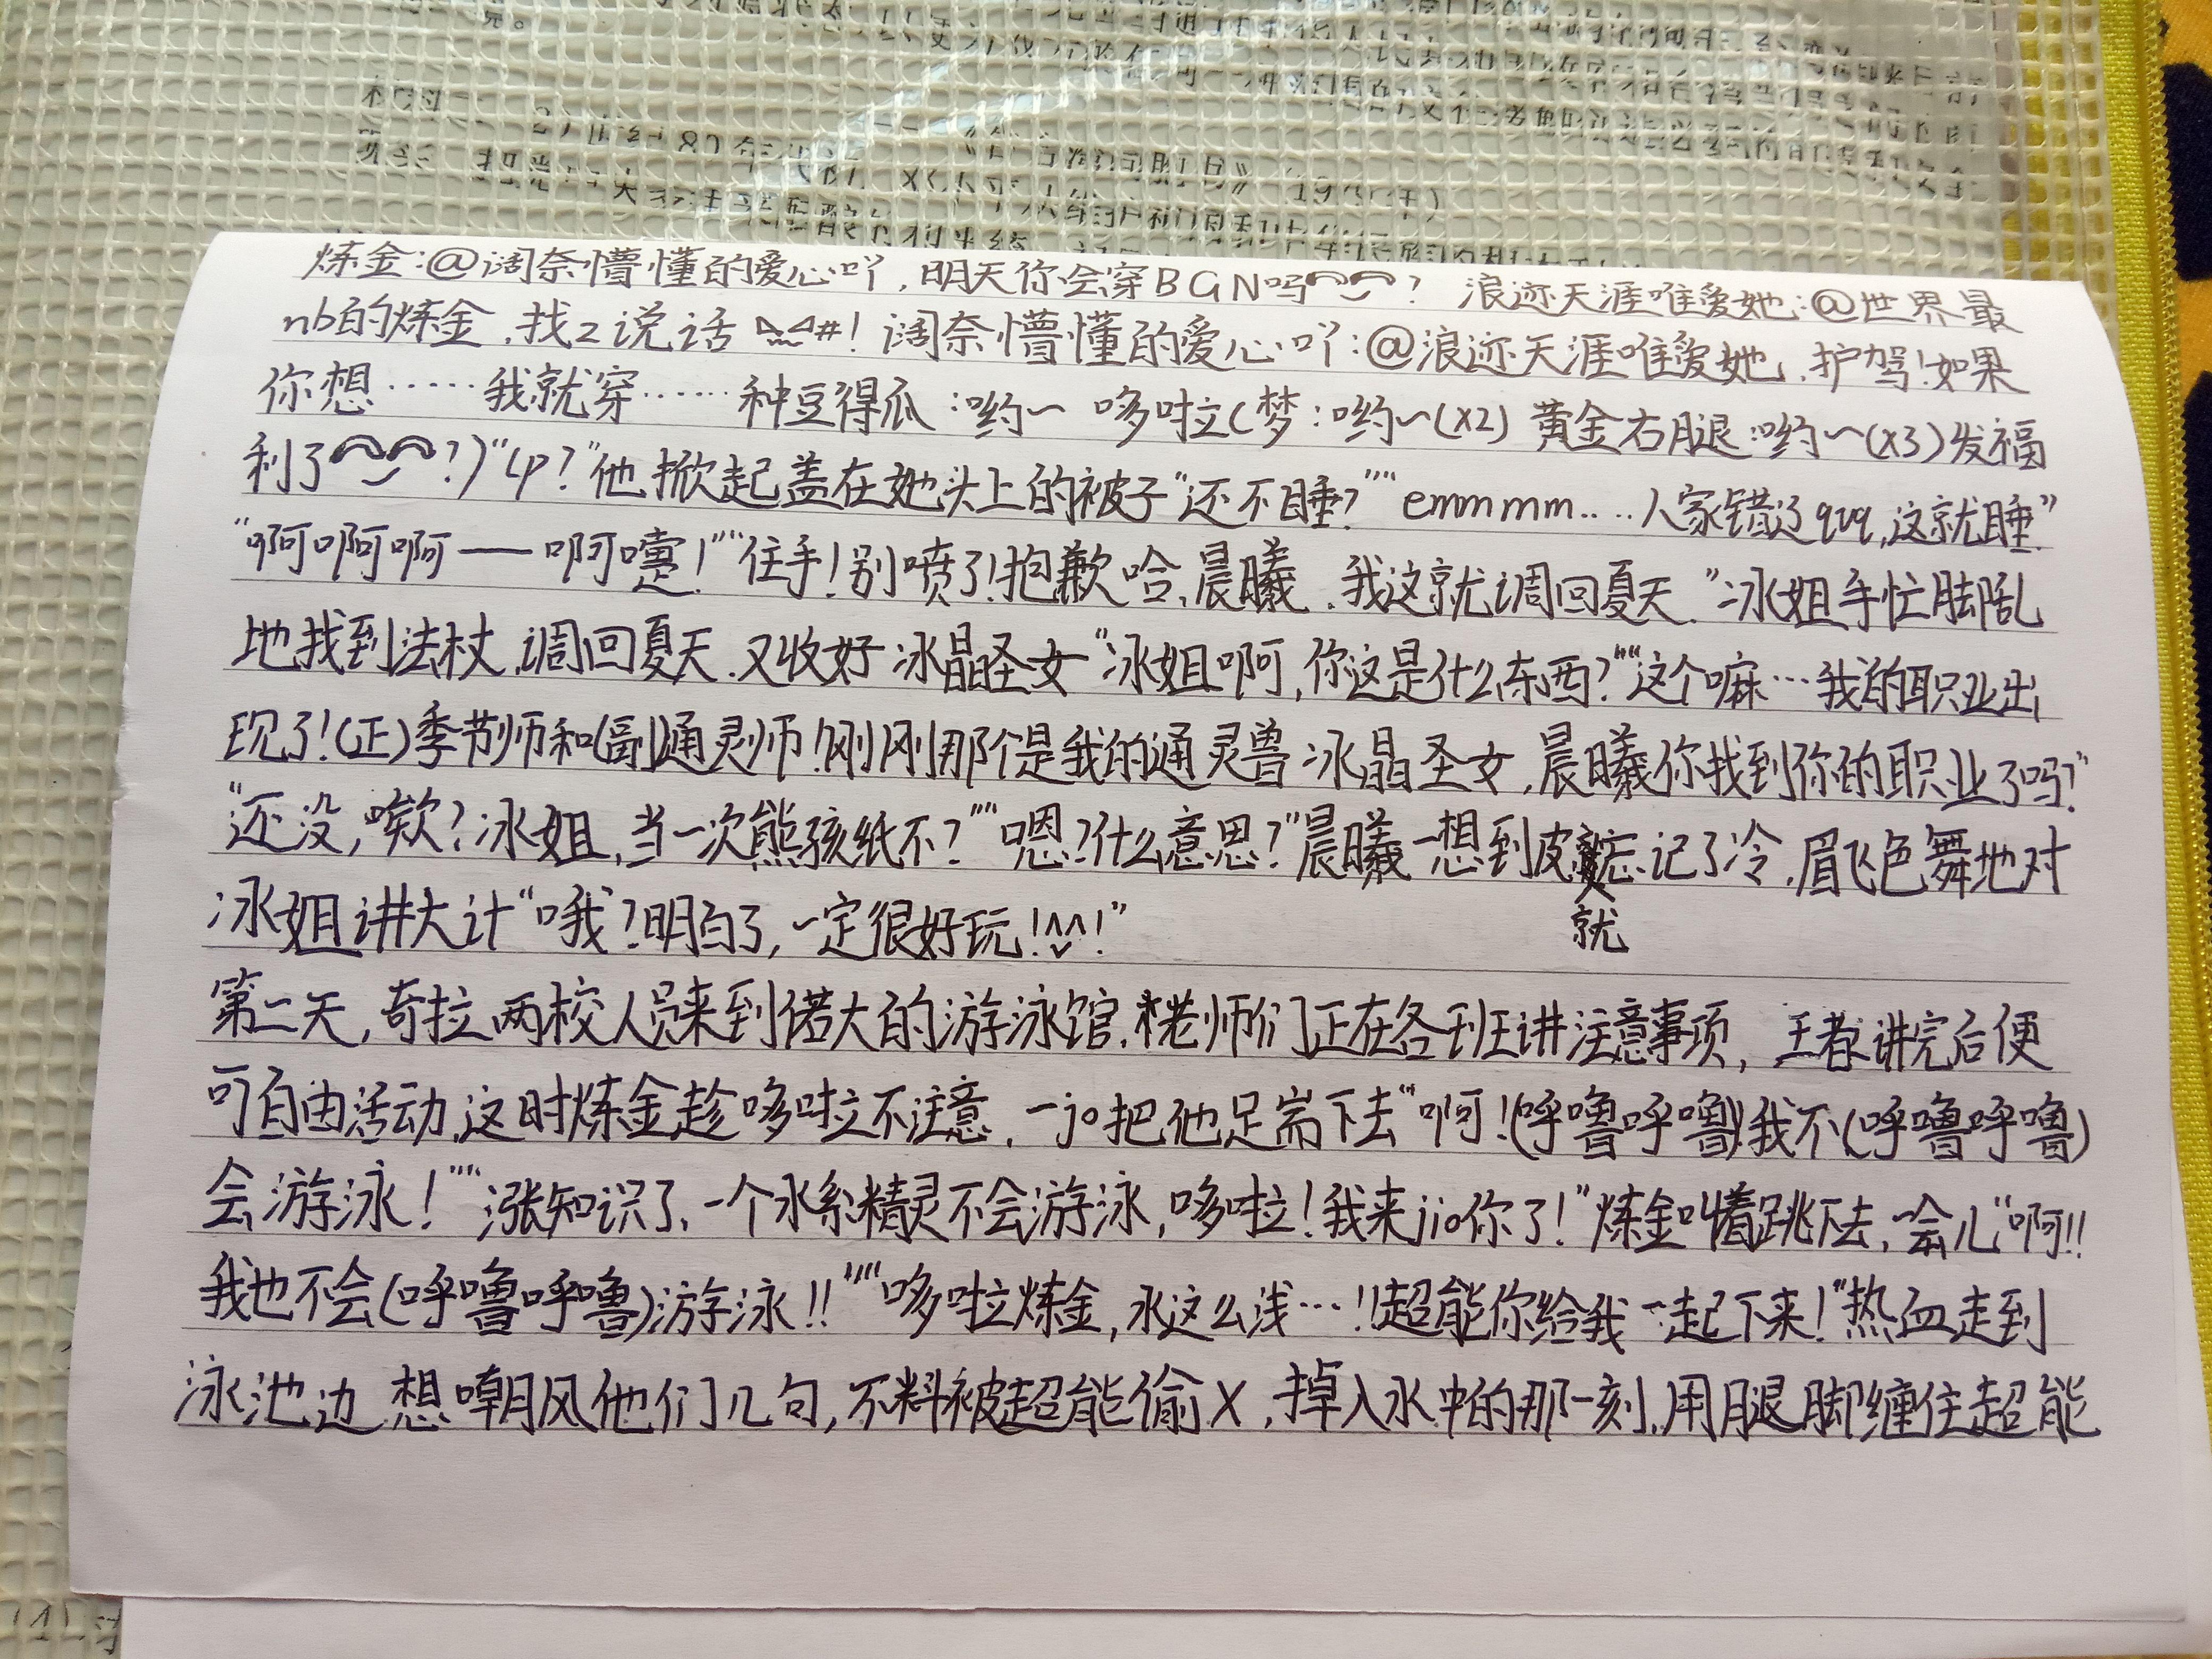 炼金:@阔奈懵懂的爱心吖,明天你会穿BGN吗⌒⌣⌒? 浪迹天涯唯爱她:@世界最
nb的炼金,找z说话#! 阔奈懵懂的爱心吖:@浪迹天涯唯爱她,护驾!如果
你想……我就穿……种豆得瓜:哟~ 哆啦(梦:哟~(x2) 黄金右腿:哟~(x3)发福
利了⌒⌣⌒?)“lp?”他掀起盖在她头上的被子“还不睡?”“emmmm....人家错了qvq,这就睡”
“啊啊啊——啊嚏!”“住手!别喷了!抱歉哈,晨曦,我这就调回夏天.”冰姐手忙脚乱
地找到法杖,调回夏天.又收好冰晶圣女“冰姐啊,你这是什么东西?”“这个嘛…我的职业出
现了!(正)季节师和(副)通灵师!刚刚那个是我的通灵兽冰晶圣女,晨曦你找到你的职业了吗?”
“还没,唉欸?冰姐,当一次熊孩纸不?”“嗯?什么意思?”晨曦一想到皮就忘记了冷,眉飞色舞地对
冰姐讲大计“哦?明白了,一定很好玩!^^!”
第二天,奇拉两校人员来到偌大的游泳馆.老师们正在各班讲注意事项,王者讲完后便
可自由活动,这时炼金趁哆啦不注意,一jo把他踹下去“啊!(呼噜呼噜)!我不(呼噜呼噜)
会游泳!”“涨知识了,一个水系精灵不会游泳,哆啦!我来jio你了!”炼金叫着跳下去,一会儿“啊!!
我也不会(呼噜呼噜)游泳!!”“哆啦炼金,水这么浅…!!超能你给我一起下来!”热血走到
泳池边想嘲风他们几句,不料被超能偷X,掉入水中的那一刻,用腿脚缠住超能